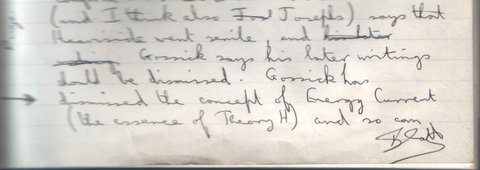 (and I think also Josephs) says that
Heaviside went senile, and his later
Gossick says his later writings
shall be dismissed. Gossick has
dismissed the concept of Energy Current
(the essence of Theory H) and so can